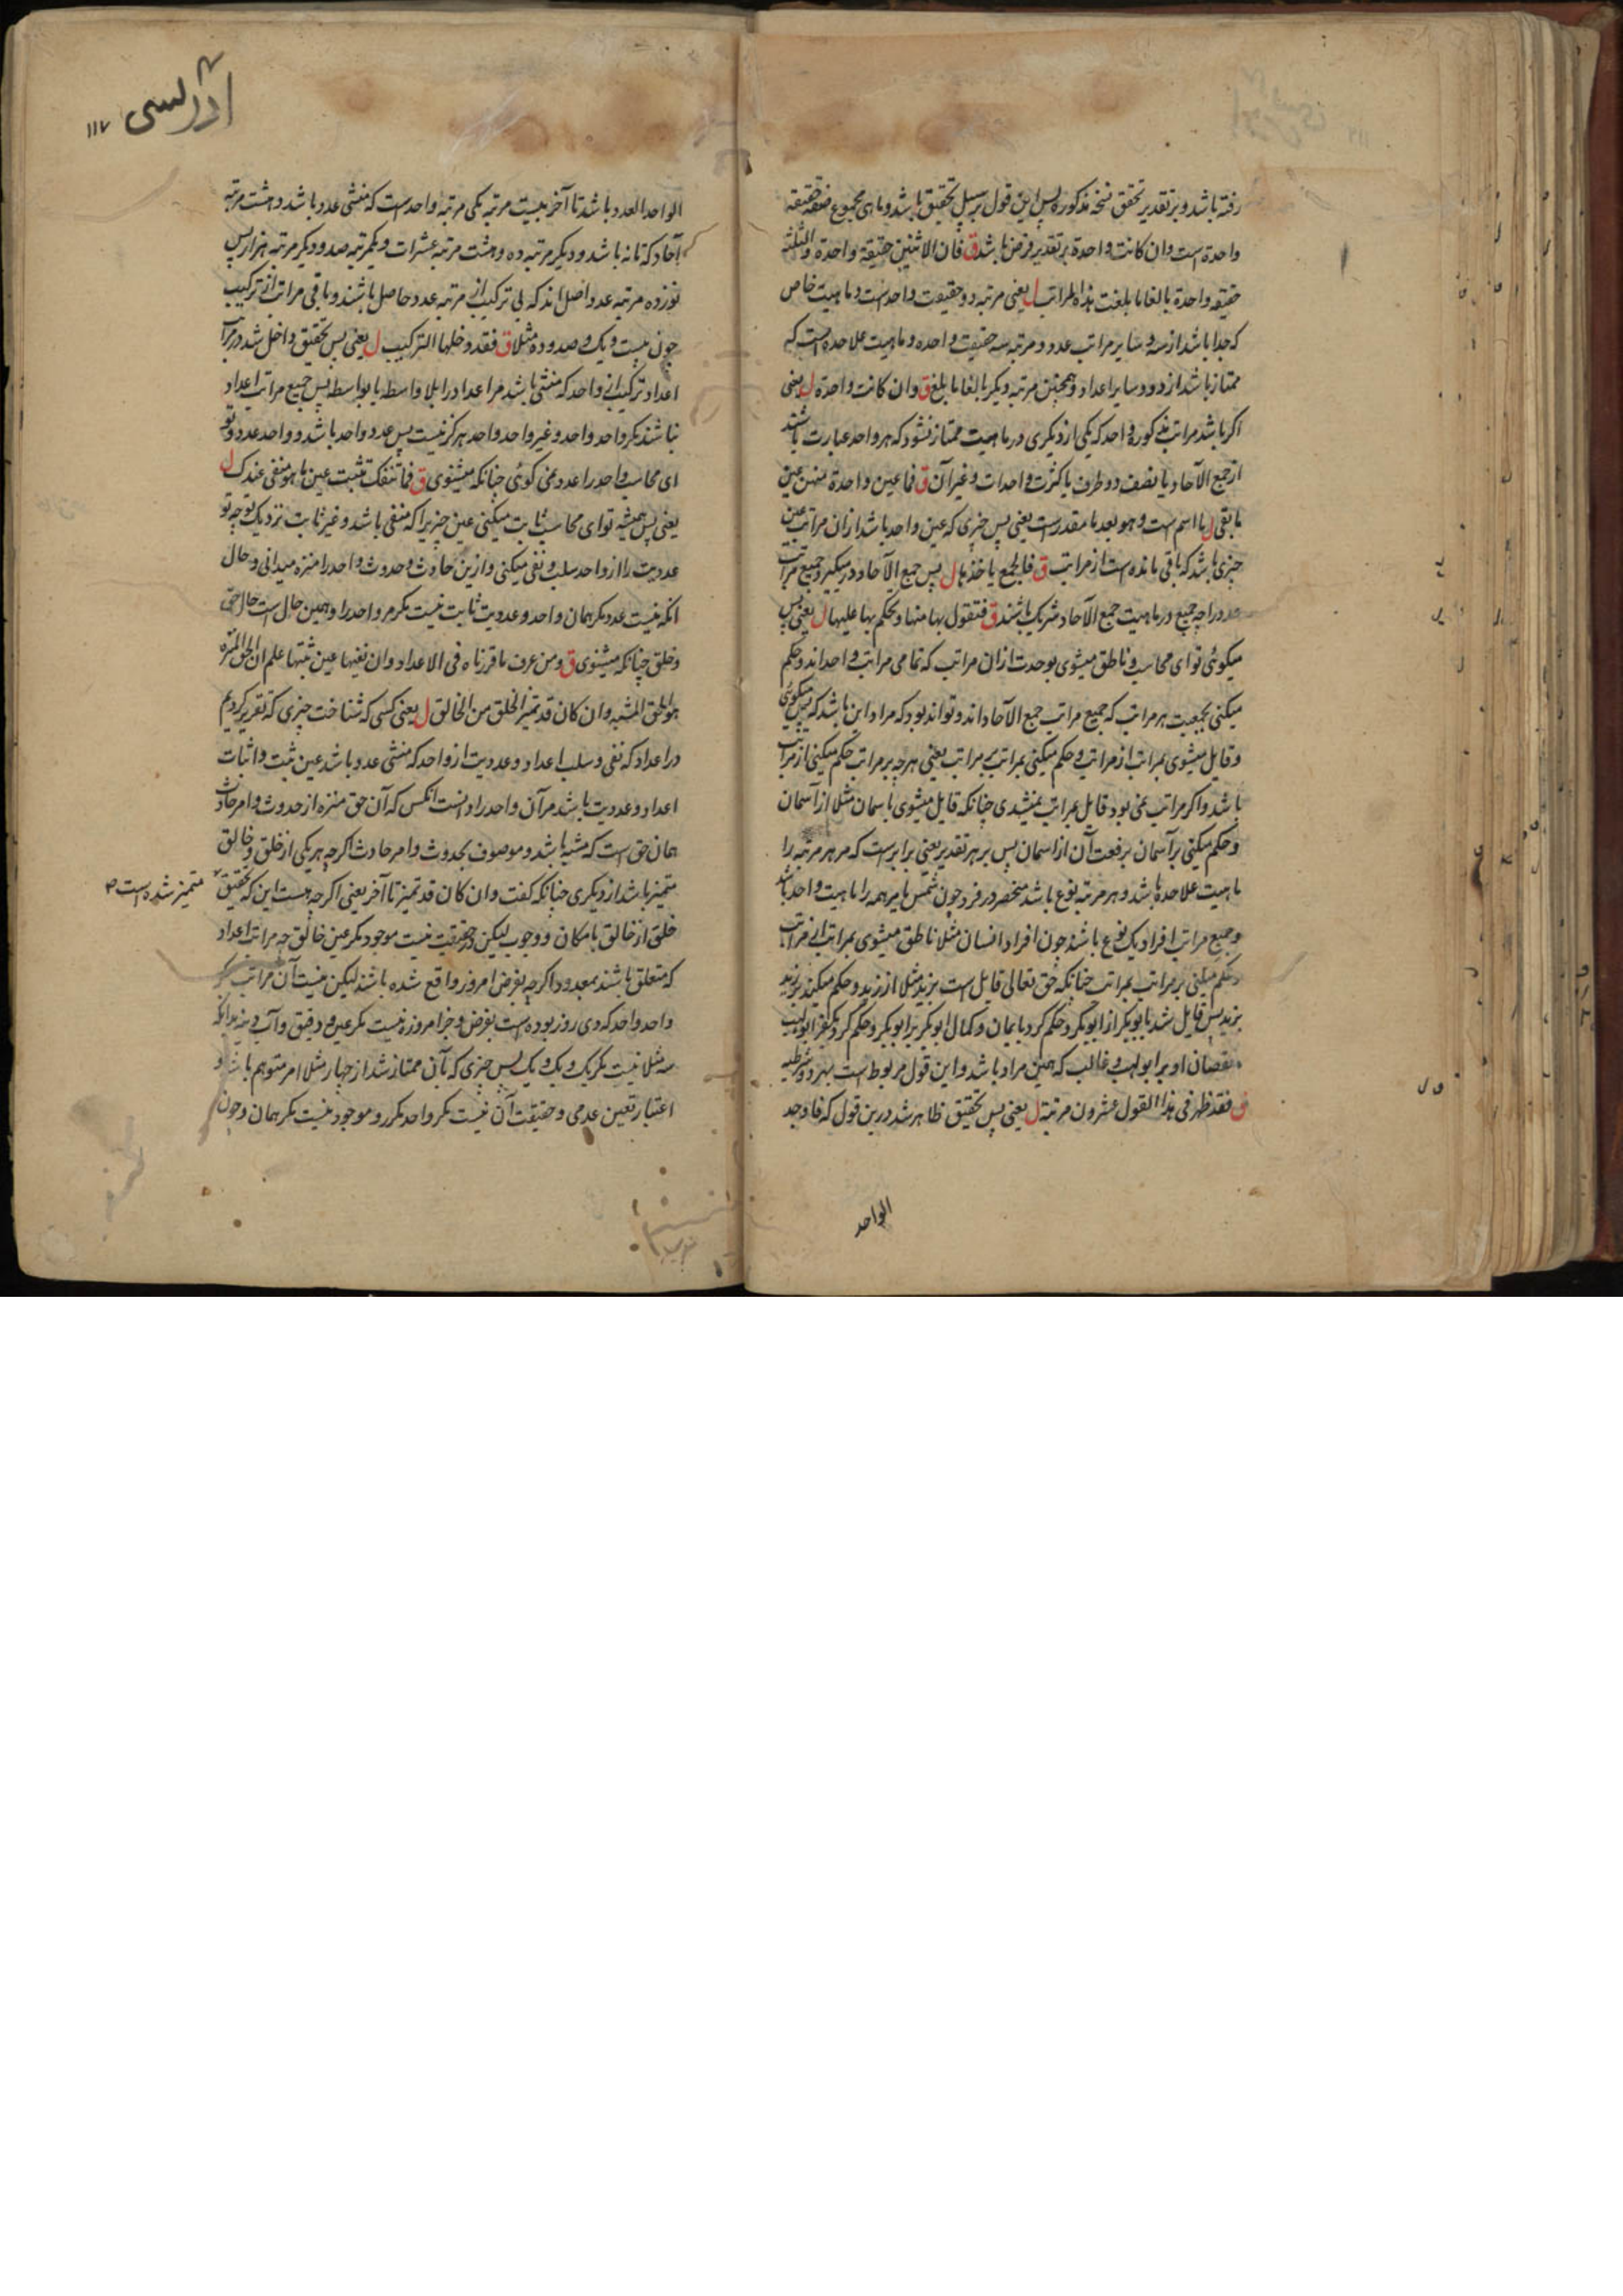 رفته باشد و بر تقدیر تحقق نسخه مذکوره پس این قول بر سبیل تحقیق باشد و ما هی مجموع فقط حقیقة
واحدة است وان کانت واحدة بر تقدیر فرض باشد ق فان الاثنین حقیقة واحدة والثلثة
حقیقة واحدة بالغا ما بلغت هذه المراتب ل یعنی مرتبه دو حقیقت واحد است و ماهیت خاص
که جدا باشد از سه و سایر مراتب عدد و مرتبه سه حقیقت واحده و ماهیت علاحده است که
ممتاز باشد از دو و سایر اعداد و همچنین مرتبه دیگر بالغا ما بلغ ق وان کانت واحدة ل یعنی
اگر باشد مراتب مذکوره واحد که یکی از دیگری در ماهیت ممتاز نشود که هر واحد عبارت باشد
از جمع الآحاد یا نصف دو طرف یا کثرت واحدات و غیر آن ق فما عین واحدة منهن عین
ما بقی ل ما اسم است و هو بعد ما مقدر است یعنی پس چیزی که عین واحد باشد ازان مراتب عین
چیزی باشد که باقی مانده است از مراتب ق فالجمع یاخذها ل پس جمع الآحاد در میگیرد جمیع مراتب
عدد را چه جمیع در ماهیت جمع الآحاد شریک باشند ق فتقول بها منها و تحکم بها علیها ل یعنی پس
میگوئی تو ای محاسب و ناطق میشوی بوحدت ازان مراتب که تمامی مراتب واحداند و حکم
میکنی بجمعیت هر مراتب که جمیع مراتب جمع الآحاد اند و تواند بود که مراد این باشد که پس میگوئی
و قایل میشوی بمراتب از مراتب و حکم میکنی بمراتب بر مراتب یعنی هر چه بر مراتب حکم میکنی از مراتب
باشد و اگر مراتب نمی بود قایل بمراتب نمیشدی چنانکه قایل میشوی باسمان مثلا از آسمان
و حکم میکنی بر آسمان برفعت آن از اسمان پس بر هر تقدیر یعنی برابر است که مر هر مرتبه را
ماهیت علاحده باشد و هر مرتبه نوع باشد منحصر در فرد چون شمس یا مر همه را ماهیت واحد باشد
و جمیع مراتب افراد یک نوع باشند چون افراد انسان مثلا ناطق میشوی بمراتب از مراتب
و حکم میکنی بر مراتب بمراتب چنانکه حق تعالی قایل است بزید مثلا از زید و حکم میکند بر زید
بزید پس قایل شد بابوبکر از ابوبکر و حکم کرد بایمان و کمال ابوبکر بر ابوبکر و حکم کرد بکفر ابولهب
و نقصان او بر ابولهب و غالب که همین مراد باشد و این قول مربوط است بهر دو شرطیه
ق فقد ظهر فی هذا القول عشرون مرتبة ل یعنی پس تحقیق ظاهر شد درین قول که فاوجد
الواحد
۱۱۷
الواحد العدد باشد تا آخر بیست مرتبه یکی مرتبه واحد است که منشی عدد باشد و هشت مرتبه
آحاد که تا نه باشد و دیگر مرتبه ده و هشت مرتبه عشرات و یکمرتبه صد و دیگر مرتبه هزار پس
نوزده مرتبه عدد اصل اند که بی ترکیب از مرتبه عدد حاصل باشند و باقی مراتب از ترکیب
چون بیست و یک و صد و ده مثلا ق فقد دخلها الترکیب ل یعنی پس تحقیق داخل شد در مراتب
اعداد ترکیب از واحد که منشی باشد مر اعداد را بلا واسطه یا بواسطه پس جمیع مراتب اعداد
نباشند مگر واحد واحد و غیر واحد واحد هرگز نیست پس عدد واحد باشد و واحد عدد و تو
ای محاسب واحد را عدد نمی گوئی چنانکه میشنوی ق فما تنفک تثبت عین ما هو منفی عندک ل
یعنی پس همیشه تو ای محاسب ثابت میکنی عین چیزیرا که منفی باشد و غیر ثابت نزدیک تو چه تو
عددیت را از واحد سلب و نفی میکنی و ازین حادث و حدوث واحد را منزه میدانی و حال
آنکه نیست عدد مگر همان واحد و عددیت ثابت نیست مگر مر واحد را و همین حال است حال حق
و خلق چنانکه میشنوی ق ومن عرف ما قررناه فی الاعداد وان نفیها عین ثبتها علم ان الحق المنزه
هو الخلق المشبه وان کان قد تمیز الخلق من الخالق ل یعنی کسی که شناخت چیزی که تقریر کردیم
در اعداد که نفی و سلب اعداد و عددیت از واحد که منشی عدد باشد عین ثبت و اثبات
اعداد و عددیت باشد مر آن واحد را دانست انکس که آن حق منزه از حدوث و امر حادث
همان حق است که مشبه باشد و موصوف بحدوث و امر حادث اگر چه هر یکی از خلق و خالق
متمیز باشد از دیگری چنانکه گفت وان کان قد تمیز تا آخر یعنی اگر چه هست این که تحقیق
متمیز شده است
خلق از خالق بامکان و وجوب لیکن در حقیقت نیست موجود مگر عین خالق چه مراتب اعداد
که متعلق باشند بمعدود اگر چه بفرض امروز واقع شده باشند لیکن نیست آن مراتب مگر
واحد واحد که دی روز بوده است بفرض و جز امروزه نیست مگر عین و دقیق و آب دینه زیرا که
سه مثلا نیست مگر یک و یک و یک پس چیزی که بآن ممتاز شد از چهار مثلا امر متوهم باشد و
اعتبار تعین عدمی و حقیقت آن نیست مگر واحد مکرر و موجود نیست مگر همان و چون